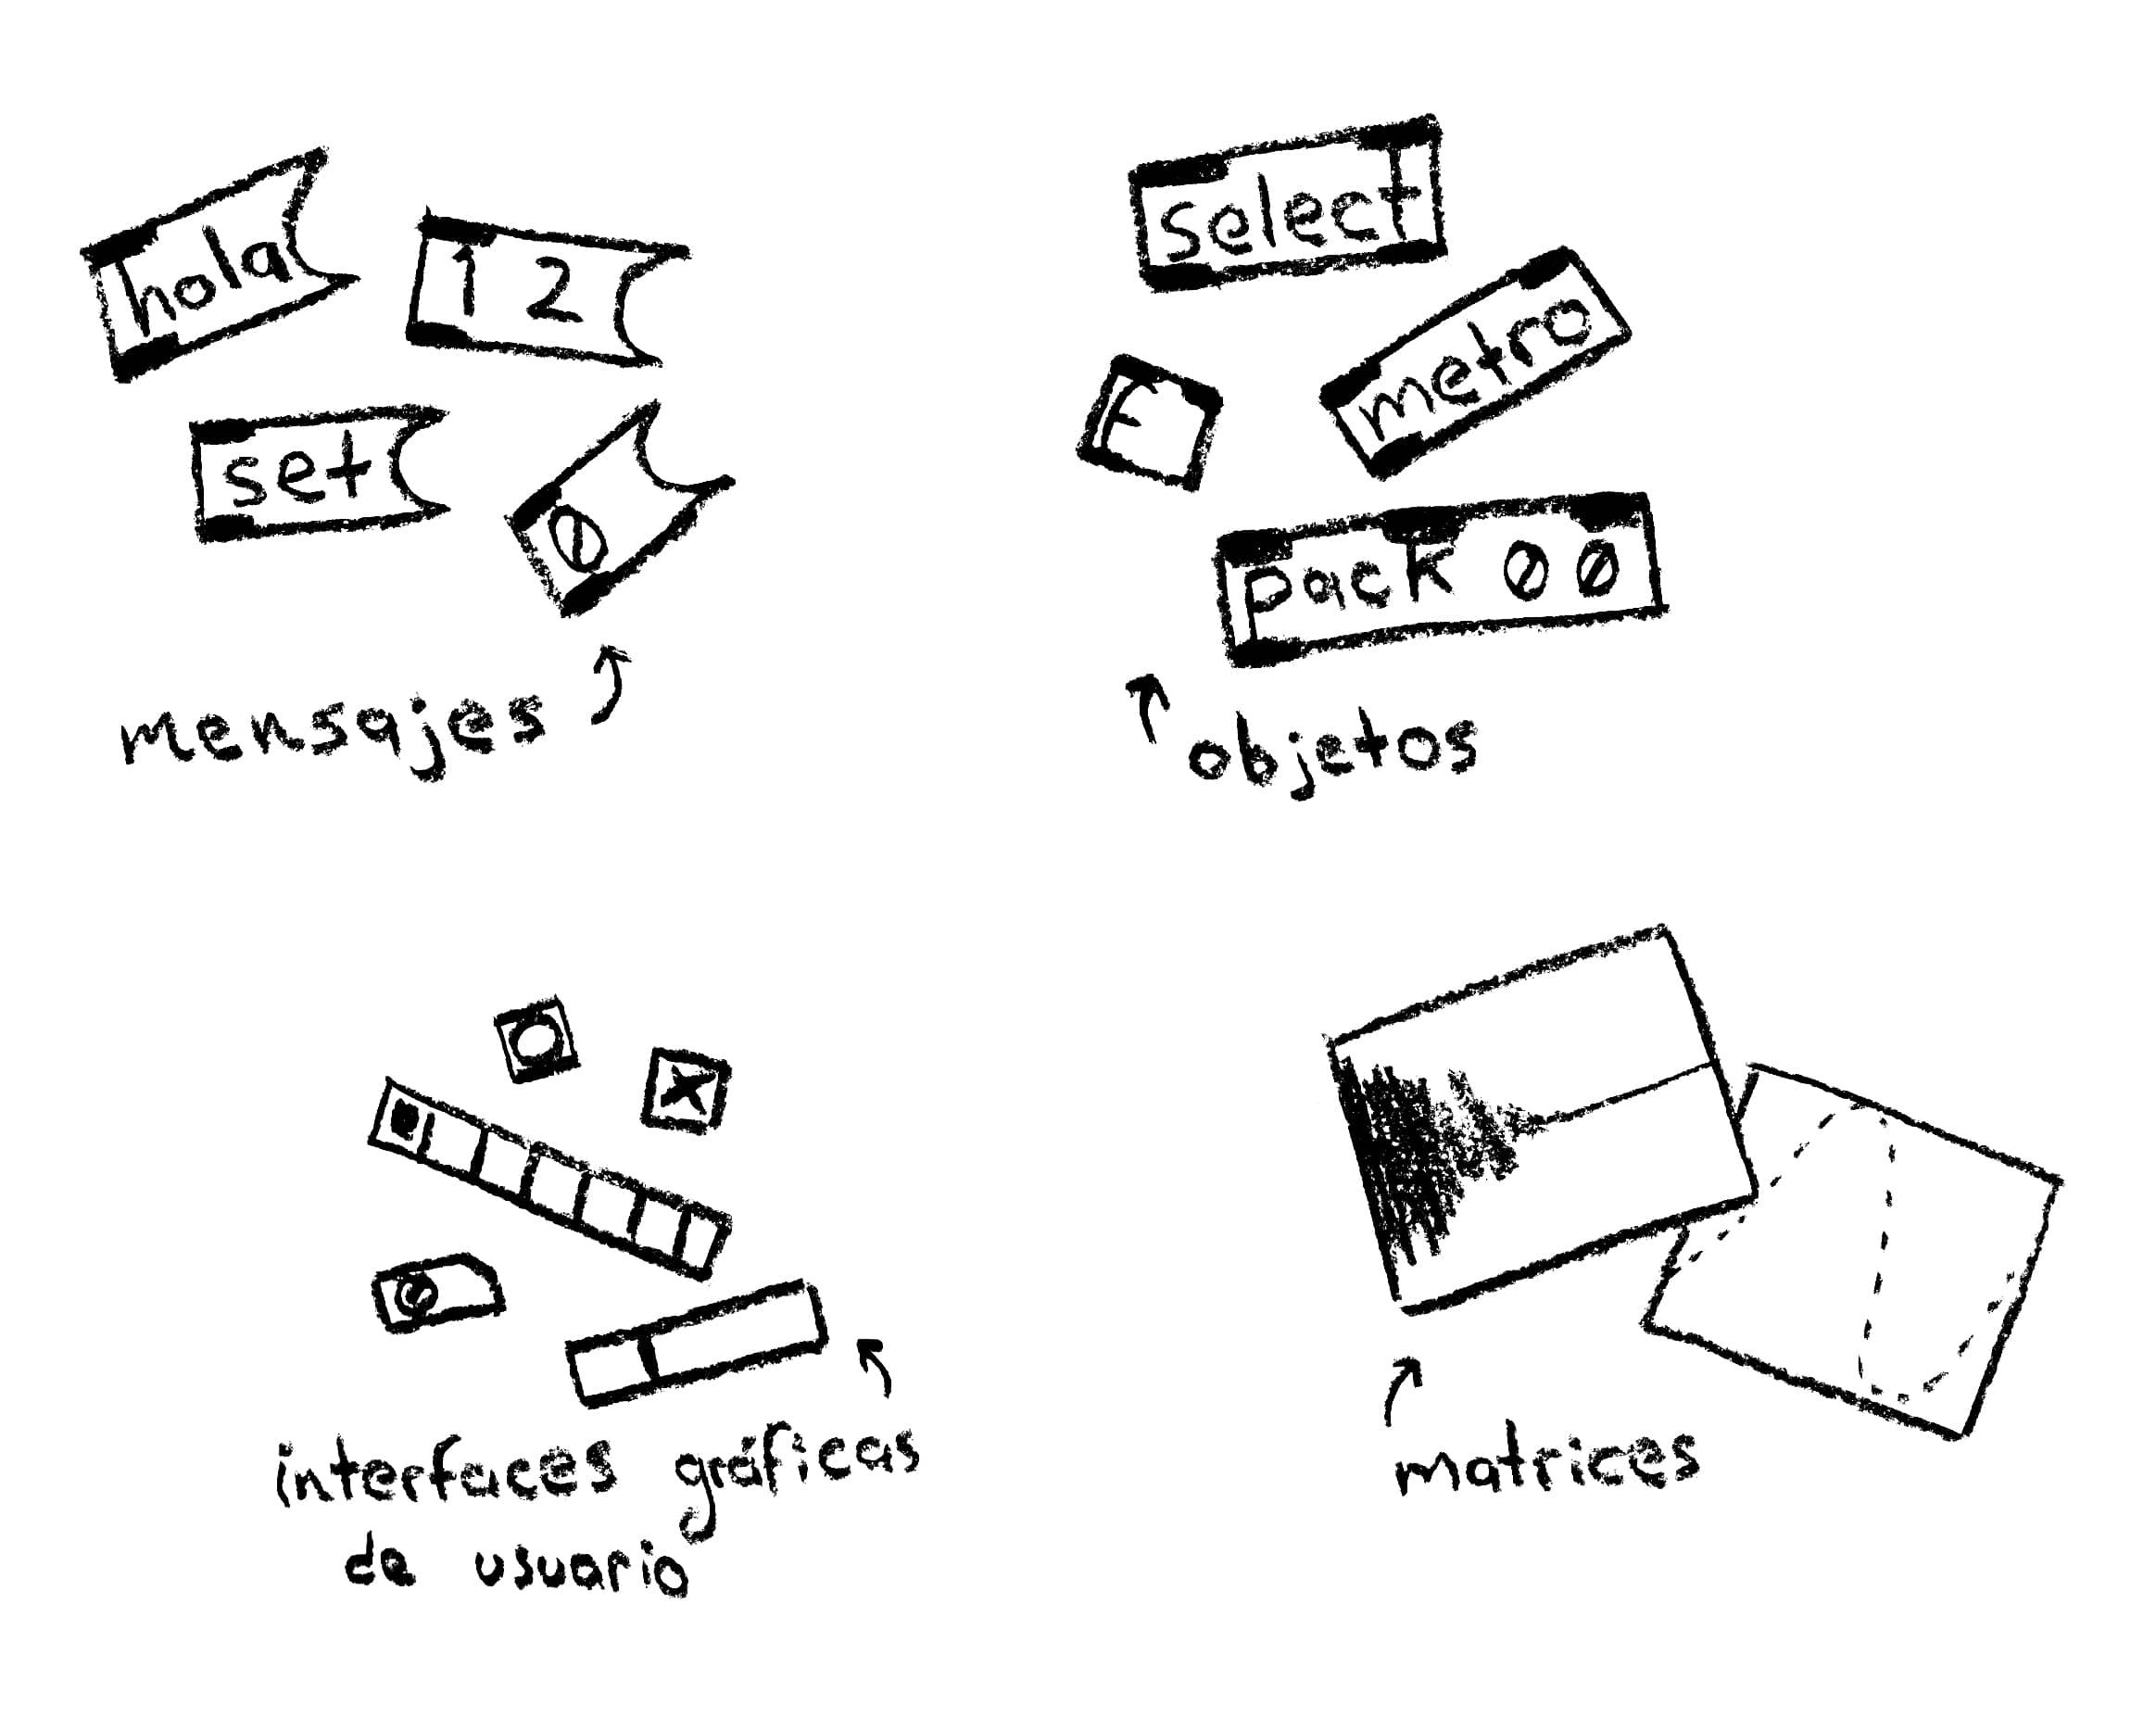 hola
1 2
set
0
mensajes
select
metro
f
pack 0 0
objetos
0
interfaces gráficas
de usuario
matrices